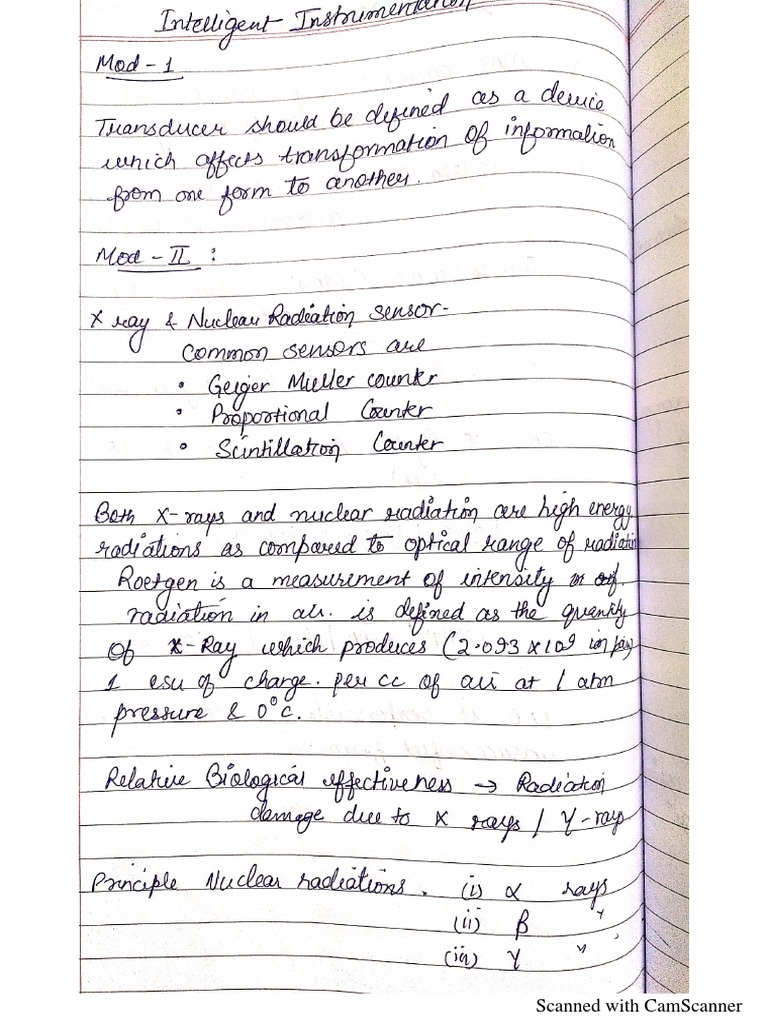 Intelligent Instrumentation
Mod - 1
Transducer should be defined as a device
which affects transformation of information
from one form to another.
Mod - II :
X ray & Nuclear Radiation sensor-
common sensors are
• Geiger Muller counter
• Proportional Counter
• Scintillation Counter
Both X-rays and nuclear radiation are high energy
radiations as compared to optical range of radiation
Roetgen is a measurement of intensity of
radiation in air. is defined as the quantity
of X-Ray which produces (2.093 x 109 ion pair)
1 esu of charge. per cc of air at 1 atm
pressure & 0°c.
Relative Biological effectiveness → Radiation
damage due to X rays / γ-ray
Principle Nuclear radiations. (i) α rays
(ii) β "
(iii) γ "
Scanned with CamScanner